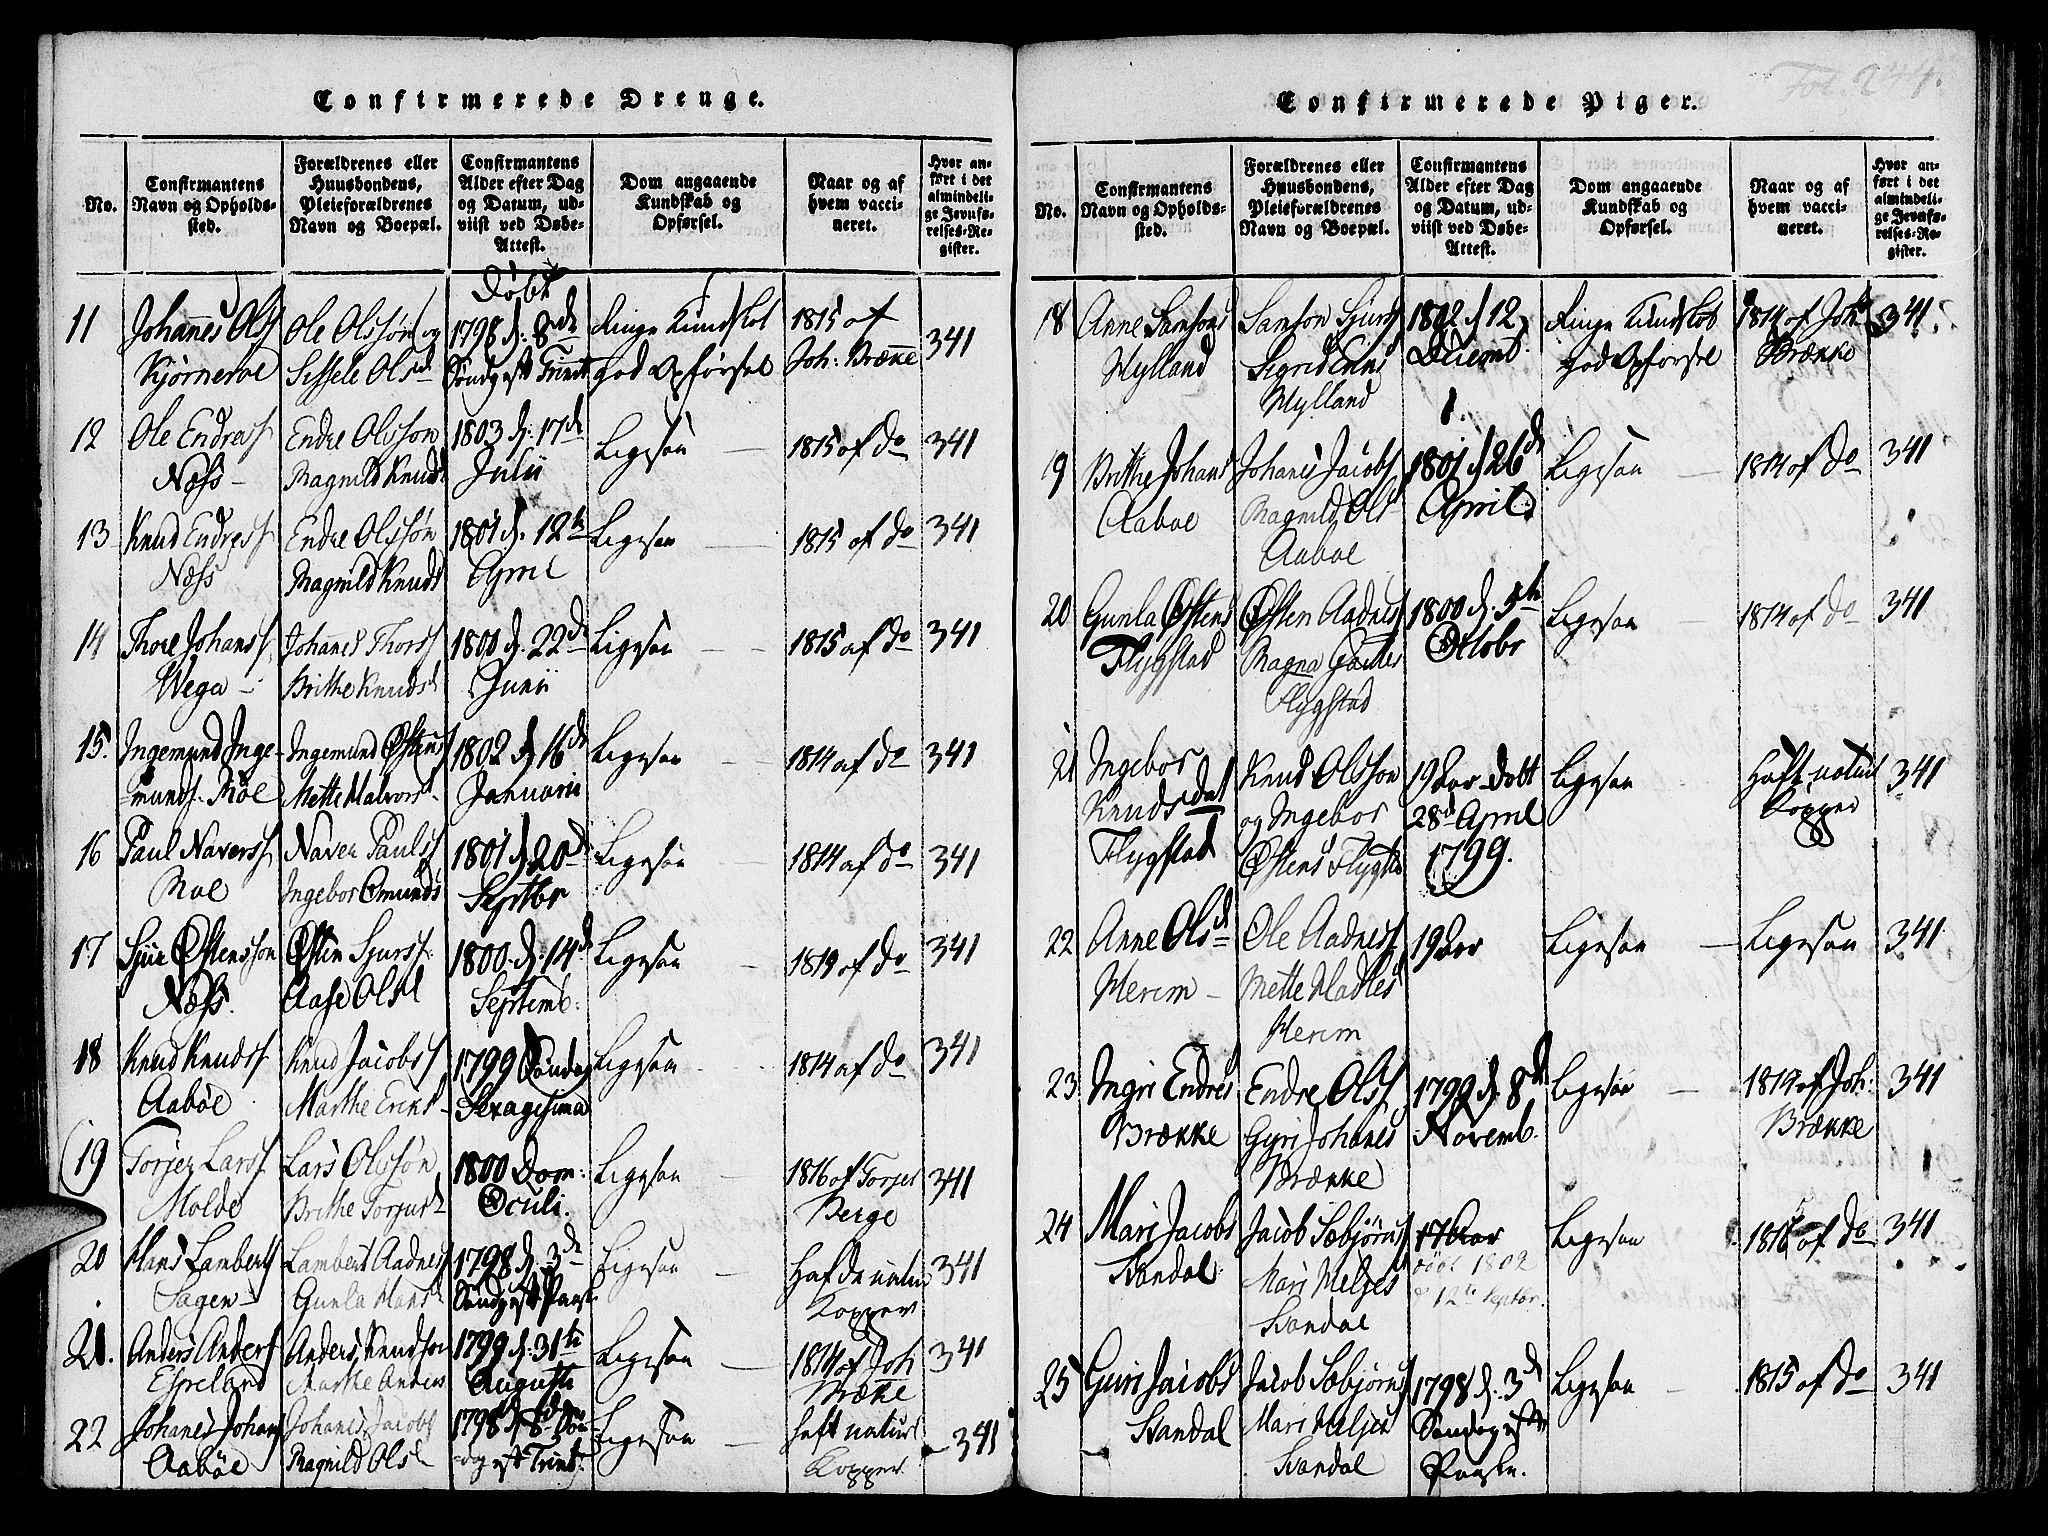 Confirmerede Drenge.
No.
Confirmantens
Navn og Opholds-
sted.
Forældrenes eller
Huusbondens,
Pleieforældrenes
Navn og Boepæl.
Confirmantens
Alder efter Dag
og Datum, ud-
viist ved Døbe-
Attest.
Dom angaaende
Kundskab og
Opførsel.
Naar og af
hvem vacci-
neret.
Hvor an-
ført i det
almindeli-
ge Jevnfø-
relses-Re-
gister.
11
Johannes Olss
Kjørneroe
Ole Olssøn og
Sissele Olsd
Døbt
1798 d. 8de
Søndg eft Trinit
Ringe Kundskab
god Opførsel
1815 af
Joh: Brække
341
12
Ole Endress
Næss
Endre Olsson
Ragnild Knudsd
1803 d. 17de
Julii
Ligesaa
1815 af do
341
13
Knud Endress
Næss
Endre Olssøn
Ragnild Knuds
1801 d. 12te
April
Ligesaa
1815 af do
341
14
Thore Johanss
Wega
Johannes Thorss
Brithe Knudsd
1800 d. 22de
Junii
Ligesaa
1815 af do
341
15.
Ingemund Inge-
munds. Röe
Ingemund Østens
Mette Halvors
1802 d 16de
Januarii
Ligesaa
1814 af do
341
16
Paul Naverss
Moe
Naver Paulss
Ingebor Omunds
1801 d. 20de
Septbr
Ligesaa
1814 af do
341
17
Siur Østensson
Næss.
Østen Sjurss.
Aase Olsd
1800. d. 14de
Septemb:
Ligesaa
1819 af do
341
18
Knud Knudss
Aabøe
Knud Jacobss
Marthe Erics
1799 Søndag
Sexagesima
Ligesaa
1814 af do
341
19
Torjer Larss.
Molde
Lars Olssøn
Brithe Torjursd
1800 Dom:
Oculi.
Ligesaa
1816 af Torjer
Berge
341
20
Hans Lamberts
Sagen
Lambert Aadnes
Gunla Hansd
1798 d. 3de
Søndg eft Paaske
Ligesaa
Hafde naturl
Kopper
341
21.
Anders Anders
Espeland
Anders Knudson
Marthe Anders
1799 d. 31te
Augusti
Ligesaa
1814 af Joh
Brække
341
22
Johanes Johans
Aabøe
Johanes Jacobs
Ragnild Olsd
1798 d 8de Søn-
dag eft Trinit.
Ligesaa
haft naturl
Kopper
341
Fol. 244.
Confirmerede Piger.
No.
Confirmantens
Navn og Opholds-
sted.
Forældrenes eller
Huusbondens,
Pleieforældrenes
Navn og Boepæl.
Confirmantens
Alder efter Dag
og Datum, ud-
viist ved Døbe-
Attest.
Dom angaaende
Kundskab og
Opførsel.
Naar og af
hvem vacci-
neret.
Hvor an-
ført i det
almindeli-
ge Jevnfø-
relses-Re-
gister.
18
Anne Samsons
Hylland
Samson Sjurs
Sigrid
Hylland
1802 d 12
Decemb.
Ringe Kundskab
god Opførsel
1814 af Joh
Brække
341
19
Brithe Johans
Aaboe
Johanes Jacobs
Ragnild Olsd
Aaboe
1801 d 26de
April
Ligesaa
1814 af do
341
20
Gunla Østens
Flygstad
Østen Aadnes
Ragna
Flygstad
1800 d. 5te
Octobr
Ligesaa
1814 af do
341
21
Ingebor
Knudsdat
Flygstad
Knud Olsson
og Ingebor
Østens Flygst
19 Aar Døbt
28d April
1799.
Ligesaa
Haft naturl
Kopper
341
22
Anne Olsd
Herim
Ole Aadness
Mette Madles
Herim
19 Aar
Ligesaa
Ligesaa
341
23
Ingri Endres
Brække
Endre Olss
Gyri Johanes
Brække
1799 d. 8de
Novemb.
Ligesaa
1819 af Joh:
Brække
341
24
Mari Jacobs
Standal
Jacob Sæbjørns
Mari Heljes
Standal
17 Aar
døbt 1802
d 12te Septbr.
Ligesaa
1815 af do
341
25
Guri Jacobs
Standal
Jacob Sæbjørns
Mari Heljes
Standal
1798 d. 3de
Søndag eft
Paaske.
Ligesaa
1815 af do
341